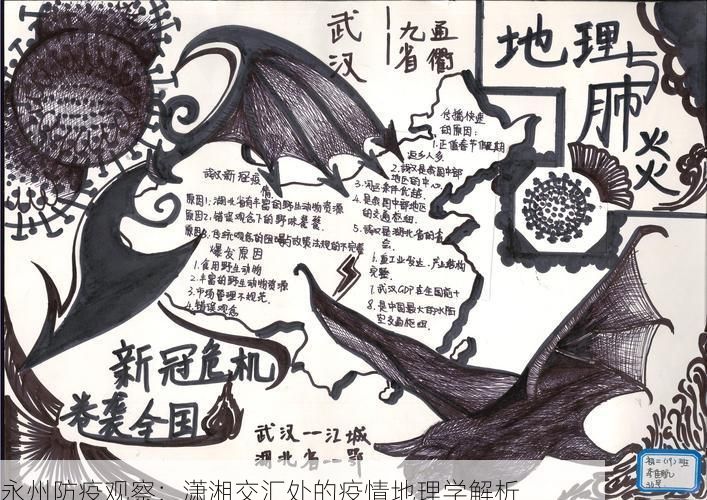 武汉
九省通衢
地理与
肺炎
传播快速
的原因：
1.正值春节假期
返乡人多
2.武汉是我国中部
地区的中心
3.河运条件优越.
4.是我国中部地区
的交通枢纽.
5.武汉是湖北省的省
会.
6.重工业发达.产业结构
完整
7.武汉GDP居全国前十
8.是中国最大的水陆
空交通枢纽.
武汉新冠疫
情
原因1:湖北省有丰富的野生动物资源
原因2:错误观念下的野味餐餐.
原因3.传统观念的阻碍与政策法规的不完整
爆发原因
1.食用野生动物
2.丰富的野生动物资源
3.市场管理不规范.
4.错误观念
新冠危机
卷袭全国
武汉--江城
湖北省--鄂
初二(19)班
永州防疫观察：潇湘交汇处的疫情地理学解析